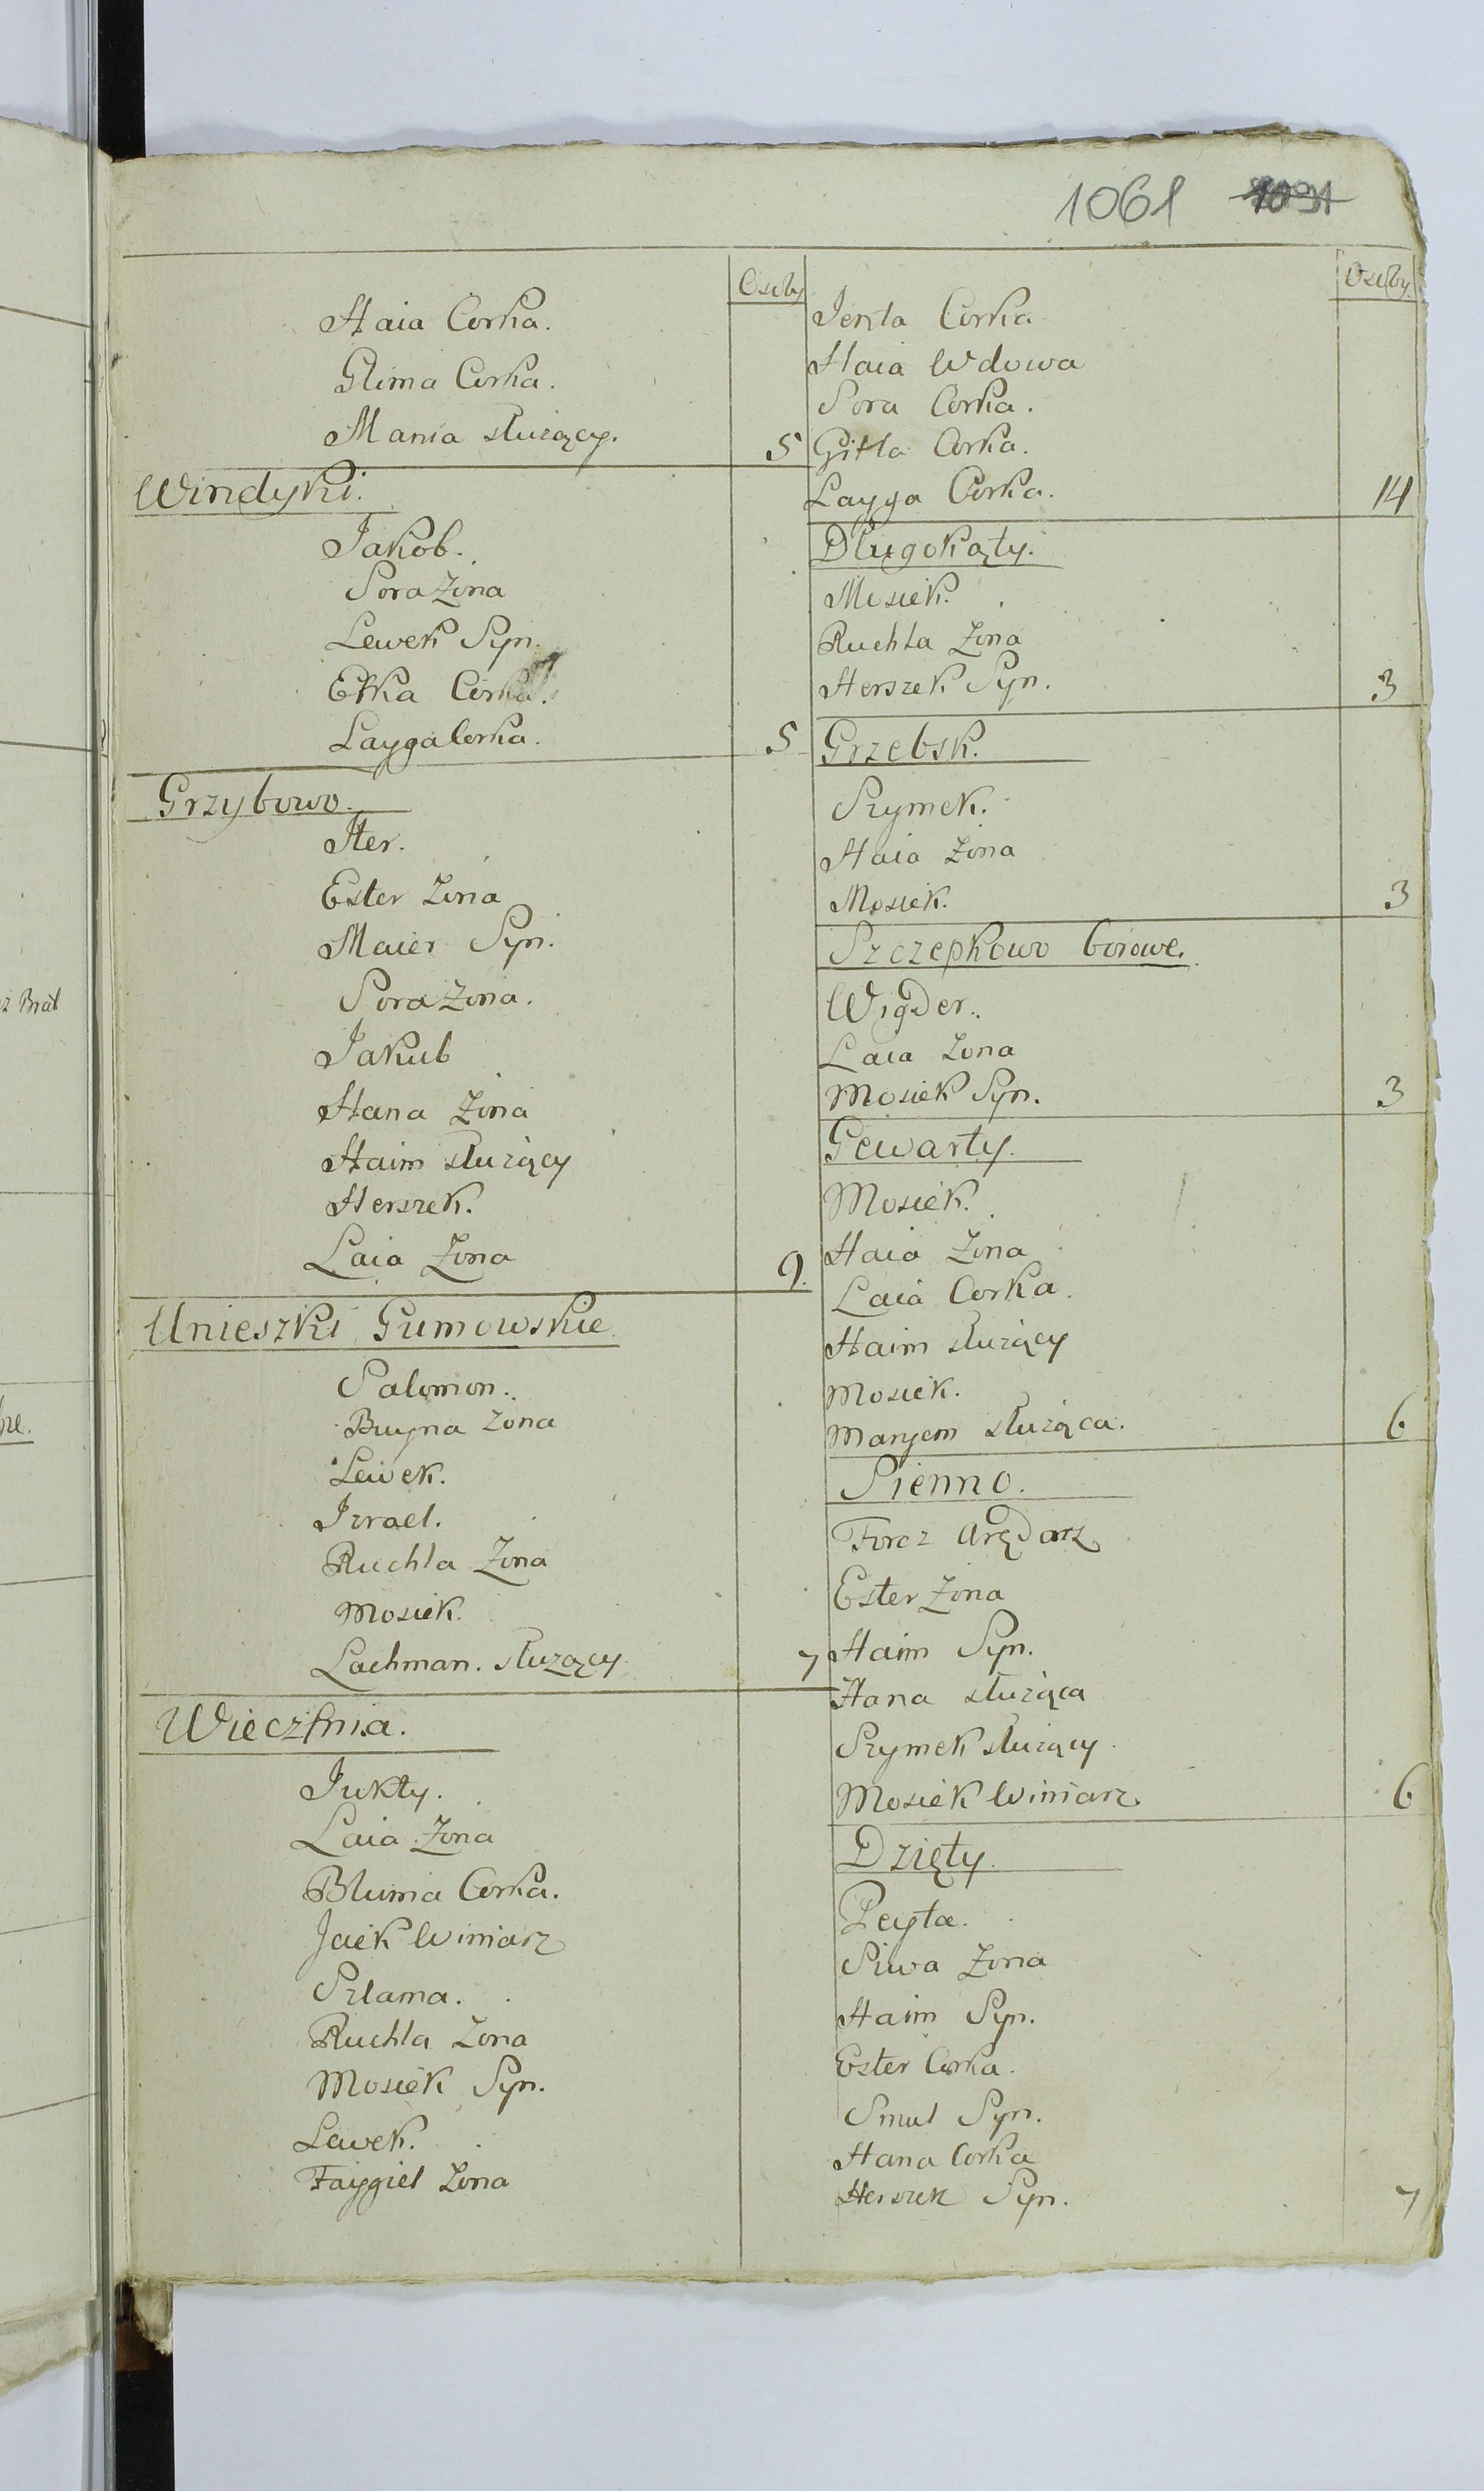 1061 1031
Osoby
Haia Corka.
Glima Corka.
Mania słuzący. 5
Windyki.
Jakob.
Sora Zona
Lewek Syn.
Etka Corka.
Layga Corka. 5
Grzybowo.
Her.
Ester Zona
Maier Syn.
Sora Zona.
Jakub
Hana Zona
Haim słuzący
Herszek.
Laia Zona 9.
Unieszki Gumowskie
Salomon.
Bruyna Zona
Lewek.
Izrael.
Ruchla Zona
Mosiek.
Lachman. słuzący 7
Wieczfnia.
Jukty.
Laia Zona
Bluma Corka.
Jcek Winiarz
Szlama.
Ruchla Zona
Mosiek Syn.
Lewek.
Faygiel Zona
Osoby.
Jenta Corka
Haia Wdowa
Sora Corka.
Gitla Corka.
Layga Corka. 14
Długokąty.
Mosiek.
Ruchla Zona
Herszek Syn. 3
Grzebsk.
Szymek.
Haia Zona
Mosiek. 3
Szczepkowo borowe.
Wigder.
Laia Zona
Mosiek Syn. 3
Gewarty.
Mosiek.
Haia Zona
Laia Corka.
Haim słuzący
Mosiek.
Maryem słuząca. 6
Pienno.
Forcz Arędarz
Ester Zona
Haim Syn.
Hana słuząca
Szymek słuzący
Mosiek Winiarz 6
Dzięty.
Peyta.
Siwa Zona
Haim Syn.
Ester Corka.
Smul Syn.
Hana Corka
Herszek Syn. 7